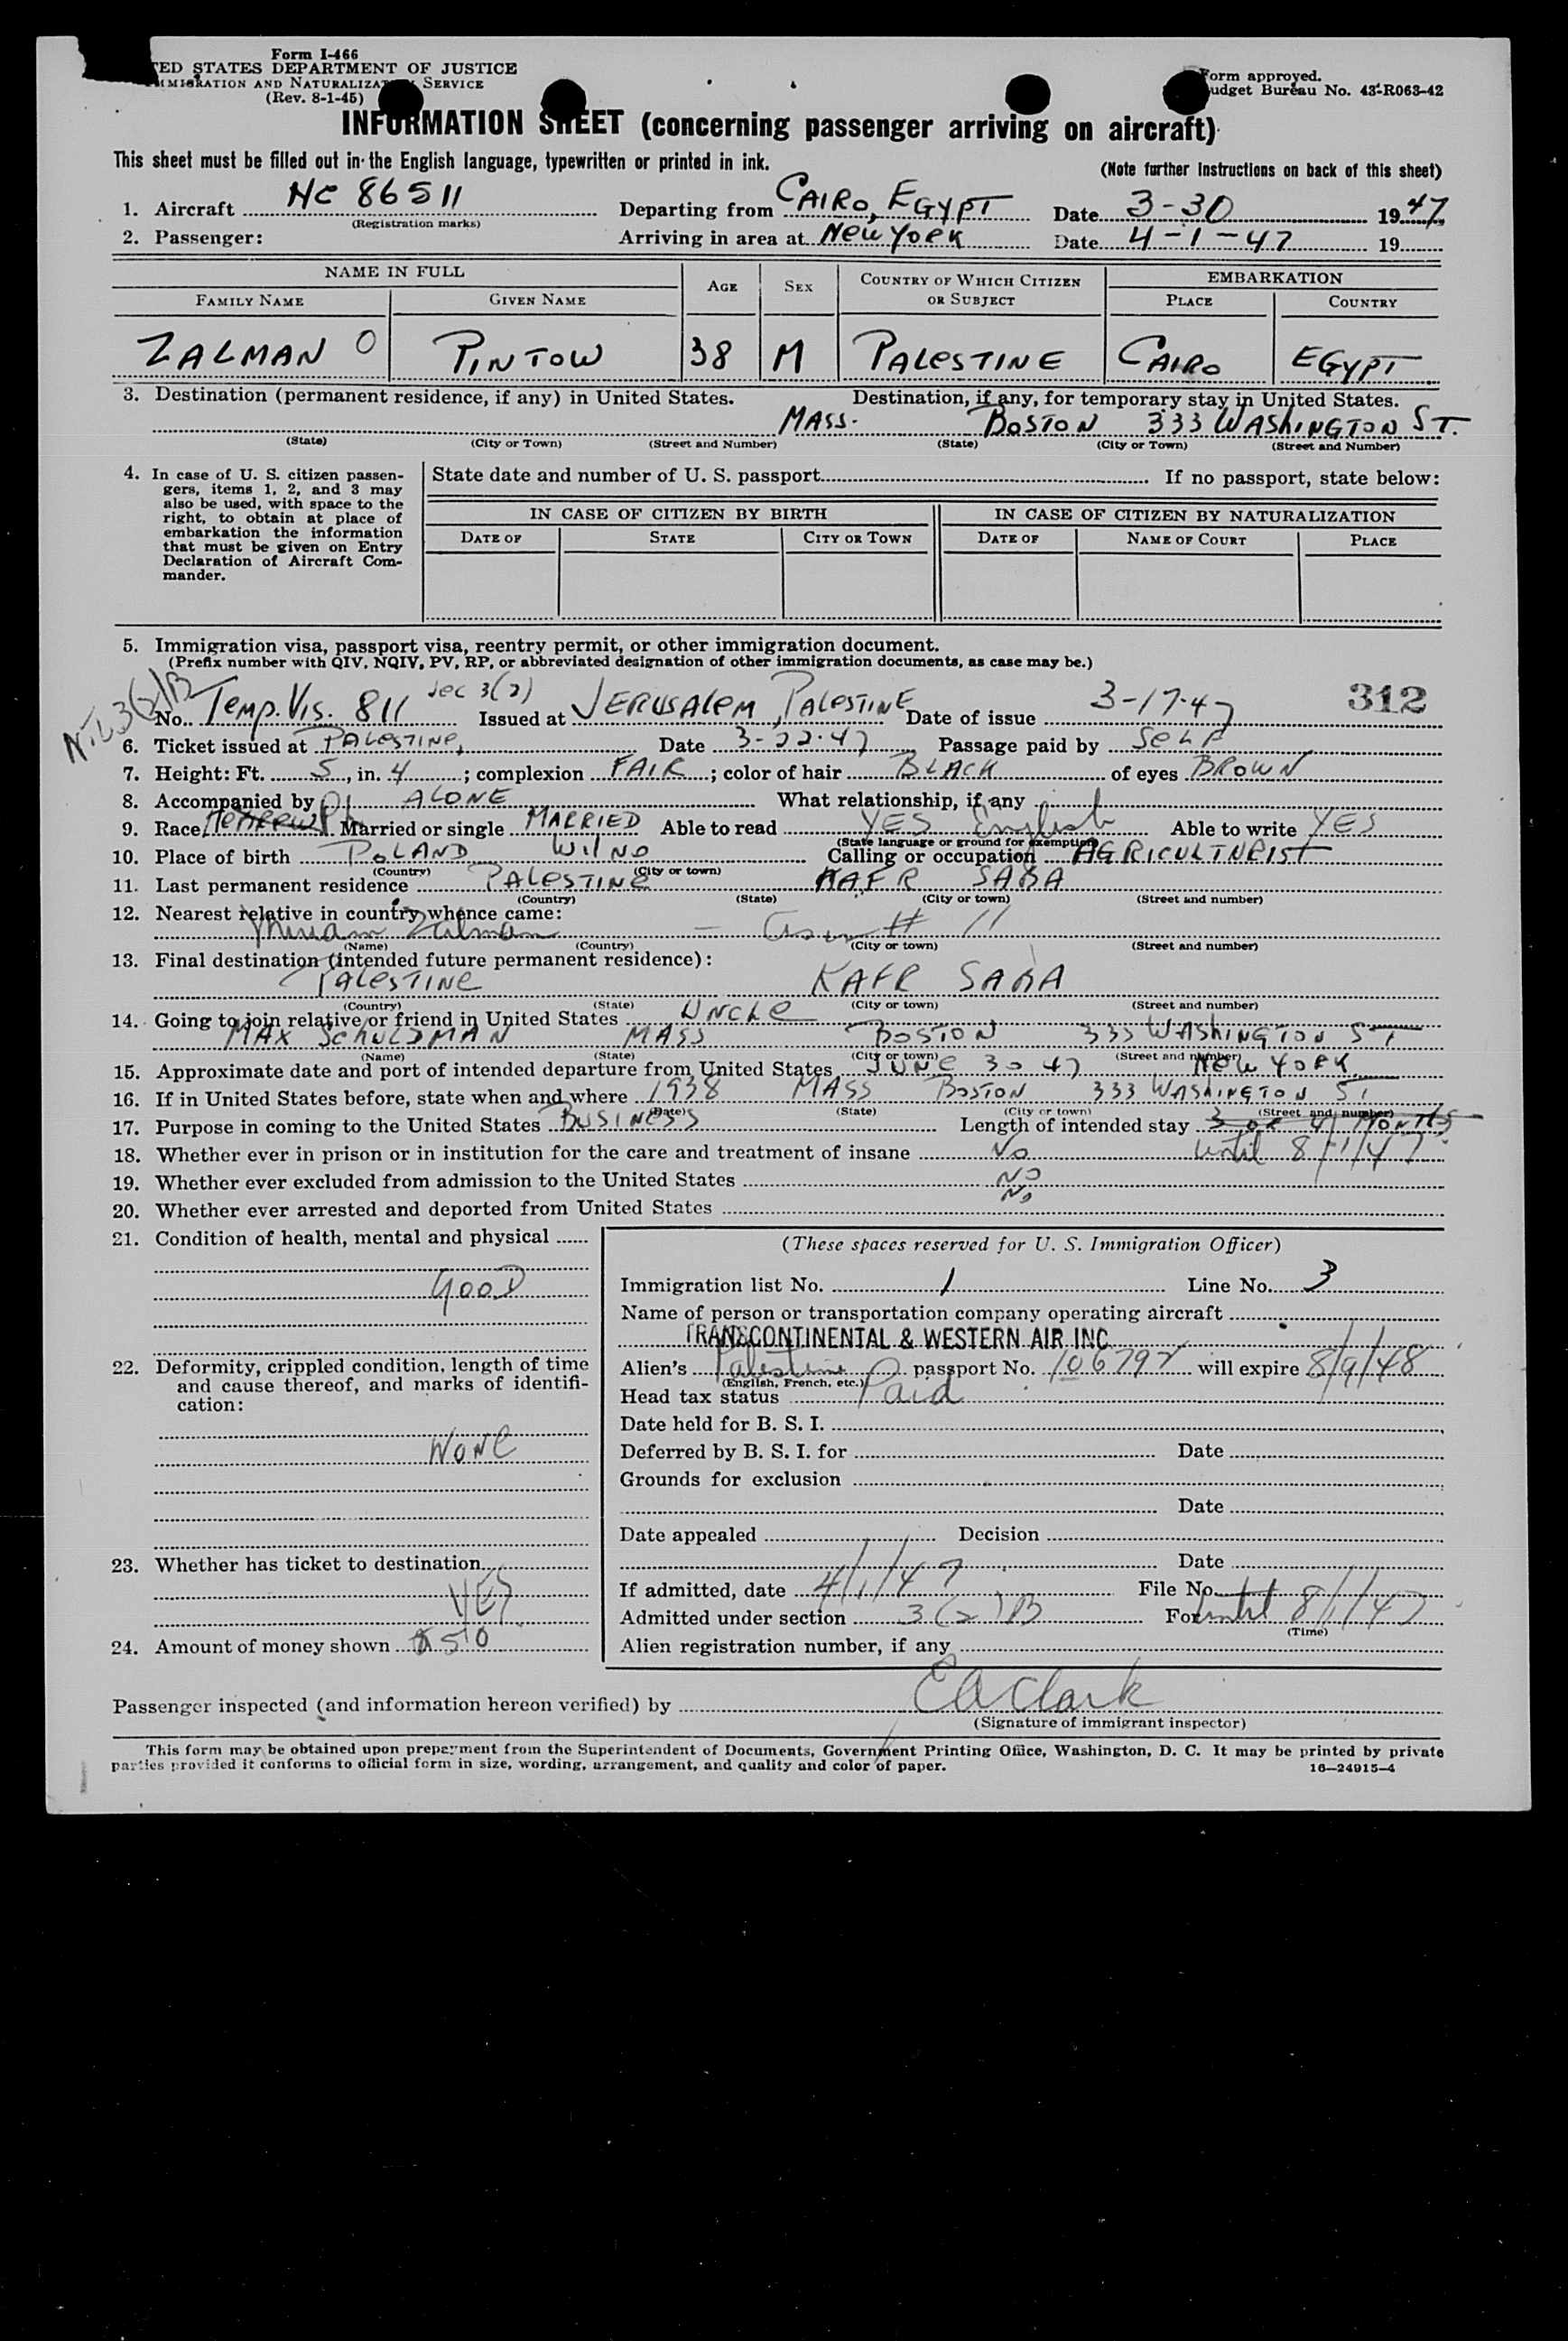 Form I-466
TED STATES DEPARTMENT OF JUSTICE
IMMIGRATION AND NATURALIZATION SERVICE
(Rev. 8-1-45)
Form approved.
Budget Bureau No. 43-R063-42
INFORMATION SHEET (concerning passenger arriving on aircraft)
This sheet must be filled out in the English language, typewritten or printed in ink.
(Note further instructions on back of this sheet)
1. Aircraft NC 86511 Departing from CAIRO, EGYPT Date 3-30 1947
(Registration marks)
2. Passenger: Arriving in area at New YORK Date 4-1-47 19
NAME IN FULL AGE SEX COUNTRY OF WHICH CITIZEN OR SUBJECT EMBARKATION
FAMILY NAME GIVEN NAME PLACE COUNTRY
ZALMAN O PINTOW 38 M PALESTINE CAIRO EGYPT
3. Destination (permanent residence, if any) in United States. Destination, if any, for temporary stay in United States.
MASS. BOSTON 333 WASHINGTON ST.
(State) (City or Town) (Street and Number) (State) (City or Town) (Street and Number)
4. In case of U. S. citizen passengers, items 1, 2, and 3 may also be used, with space to the right, to obtain at place of embarkation the information that must be given on Entry Declaration of Aircraft Commander.
State date and number of U. S. passport If no passport, state below:
IN CASE OF CITIZEN BY BIRTH IN CASE OF CITIZEN BY NATURALIZATION
DATE OF STATE CITY OR TOWN DATE OF NAME OF COURT PLACE
5. Immigration visa, passport visa, reentry permit, or other immigration document.
(Prefix number with QIV, NQIV, PV, RP, or abbreviated designation of other immigration documents, as case may be.)
No. Temp. Vis. 811 Sec 3(2) Issued at JERUSALEM, PALESTINE Date of issue 3-17-47 312
6. Ticket issued at PALESTINE, Date 3-22-47 Passage paid by SELF
7. Height: Ft. 5, in. 4; complexion FAIR; color of hair BLACK of eyes BROWN
8. Accompanied by ALONE What relationship, if any
9. Race HEBREW Married or single MARRIED Able to read YES English Able to write YES
(State language or ground for exemption)
10. Place of birth POLAND WILNO Calling or occupation AGRICULTURIST
(Country) (City or town)
11. Last permanent residence PALESTINE KAFR SABA
(Country) (State) (City or town) (Street and number)
12. Nearest relative in country whence came:
Miriam Zalman - 11
(Name) (Country) (City or town) (Street and number)
13. Final destination (intended future permanent residence):
PALESTINE KAFR SABA
(Country) (State) (City or town) (Street and number)
14. Going to join relative or friend in United States UNCLE
MAX SCHULDMAN MASS BOSTON 333 WASHINGTON ST
(Name) (State) (City or town) (Street and number)
15. Approximate date and port of intended departure from United States JUNE 30 47 New YORK
16. If in United States before, state when and where 1938 MASS BOSTON 333 WASHINGTON ST
(Date) (State) (City or town) (Street and number)
17. Purpose in coming to the United States BUSINESS Length of intended stay 3 or 4 MONTHS
18. Whether ever in prison or in institution for the care and treatment of insane No until 8/1/47
19. Whether ever excluded from admission to the United States NO
20. Whether ever arrested and deported from United States No
21. Condition of health, mental and physical
GOOD
22. Deformity, crippled condition, length of time and cause thereof, and marks of identification:
NONE
23. Whether has ticket to destination
YES
24. Amount of money shown $50
(These spaces reserved for U. S. Immigration Officer)
Immigration list No. 1 Line No. 3
Name of person or transportation company operating aircraft
TRANSCONTINENTAL & WESTERN AIR INC.
Alien's Palestine passport No. 106792 will expire 8/9/48
(English, French, etc.)
Head tax status Paid
Date held for B. S. I.
Deferred by B. S. I. for Date
Grounds for exclusion
Date
Date appealed Decision
Date
If admitted, date 4/1/47 File No.
Admitted under section 3(2)B For until 8/1/47
(Time)
Alien registration number, if any
Passenger inspected (and information hereon verified) by EA Clark
(Signature of immigrant inspector)
This form may be obtained upon prepayment from the Superintendent of Documents, Government Printing Office, Washington, D. C. It may be printed by private
parties provided it conforms to official form in size, wording, arrangement, and quality and color of paper.
16—24915-4